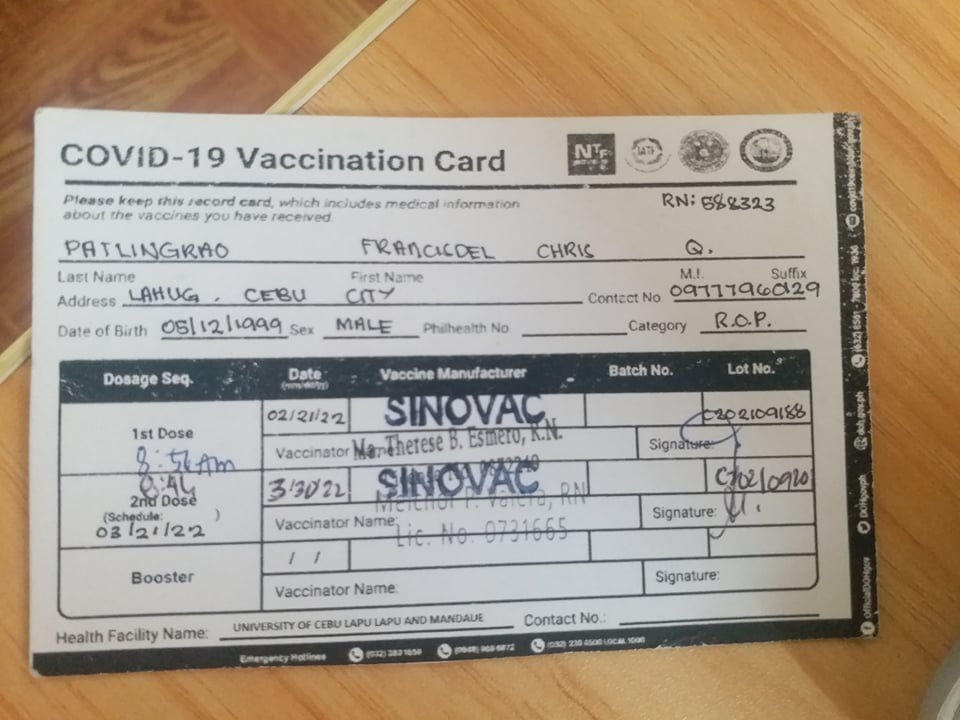 COVID-19 Vaccination Card
Please keep this record card, which includes medical information
about the vaccines you have received
RN: 588323
PATLINGRAO FRANCISDEL CHRIS Q.
Last Name First Name M.I. Suffix
Address LAHUG, CEBU CITY Contact No 09777960129
Date of Birth 05/12/1999 Sex MALE Philhealth No. Category R.O.P.
Dosage Seq. Date Vaccine Manufacturer Batch No. Lot No.
(mm/dd/yy)
1st Dose 02/21/22 SINOVAC C202109188
8:56 AM Vaccinator Ma. Therese B. Esmero, R.N. Signature:
8:44
2nd Dose 3/30/22 SINOVAC
(Schedule: )
03/21/22 Vaccinator Name: Signature:
Lic. No. 0731665
Booster / /
Vaccinator Name: Signature:
Health Facility Name: UNIVERSITY OF CEBU LAPU LAPU AND MANDAUE Contact No.:
Emergency Hotlines
doh.gov.ph
OfficialDOHgov